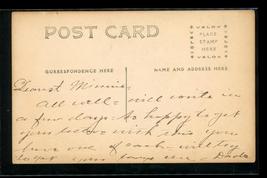 POST CARD
VELOX
PLACE
STAMP
HERE
VELOX
CORRESPONDENCE HERE
NAME AND ADDRESS HERE
Dearest Minnie:
All well - will write in
a few days - So happy to get
your letter wish you
have one of each - will try
to get you